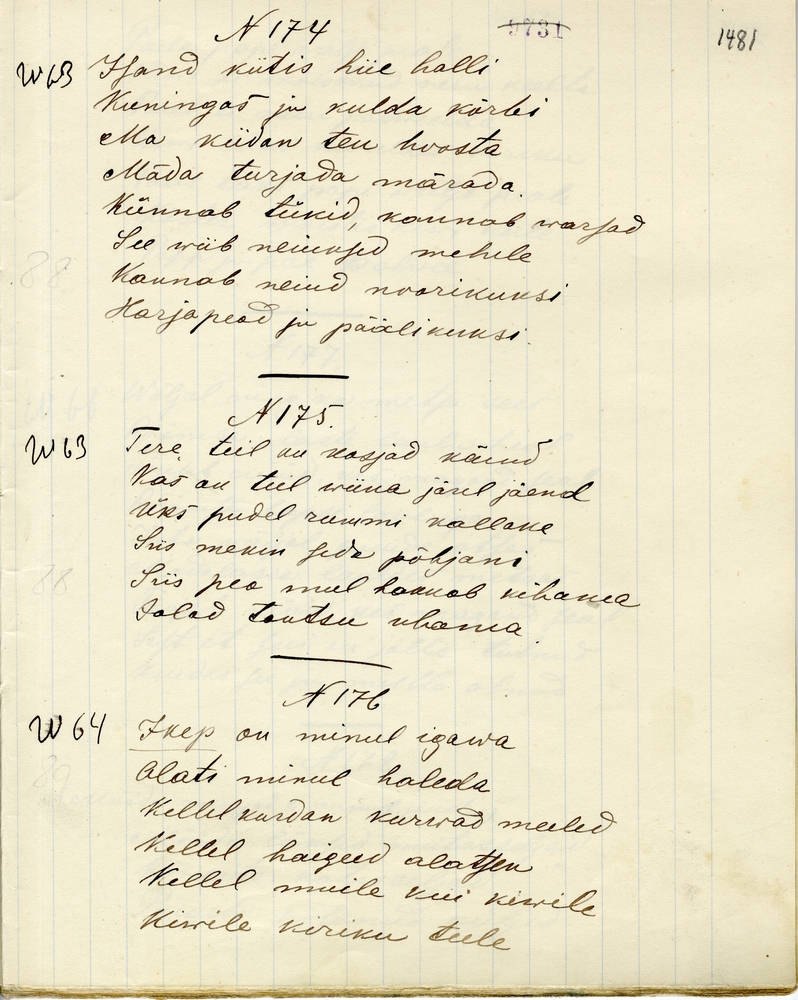 N 174
9731
1481
W 63
Isand kütis hüe halli
Kuningas ju kulda kõrbi
Ma küdan teu hoosta
Mäda turjada märada.
Künnab tükid, kannab warsad
See wiib neiuksed mehele
Kannab neiud noorikuksi
Harjapead ju päälikuksi.
N 175.
W 63
Tere, teil on kosjad käind
Kas on teil wiina järel jäend
Üks pudel rummi kallake
Siis mekin seda põhjani
Siis pea mul hakkab kihama
Jalad tantsu uhama.
N 176
W 64
Ikep on minul igawa
Alati minul haleda
Kellel kurdan kurwad meeled
Kellel haiged alatsen
Kellel muile kui kiwile
Kiwile kiriku teele